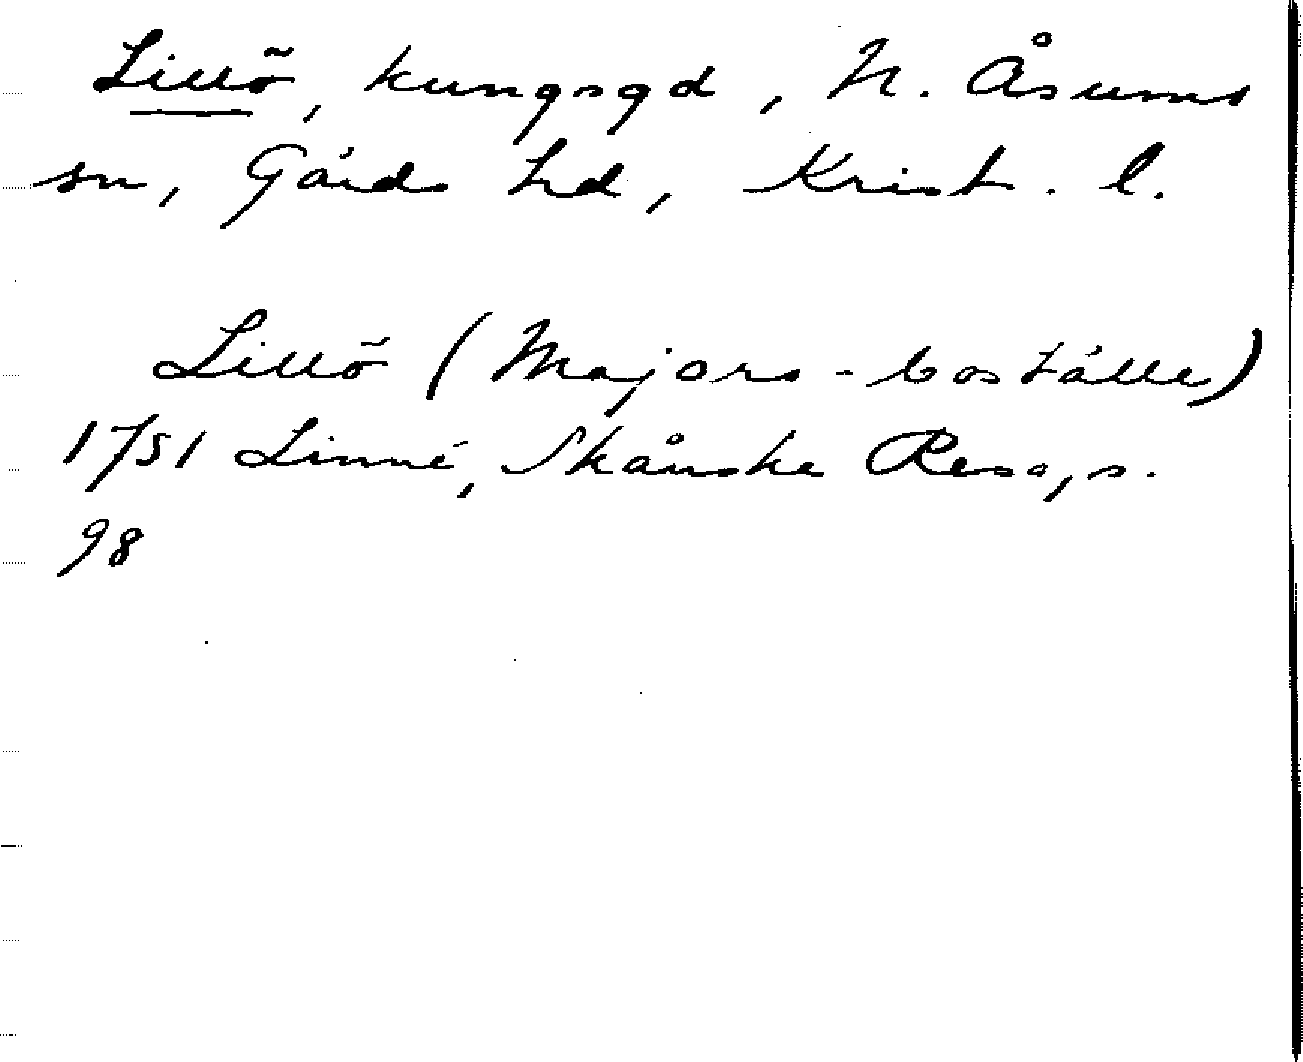 Lillö, kungsgd, N. Åsums
sn, Gärds hd, Krist. l.
Lillö (Majors-boställe)
1751 Linné, Skånska Resa, s.
98